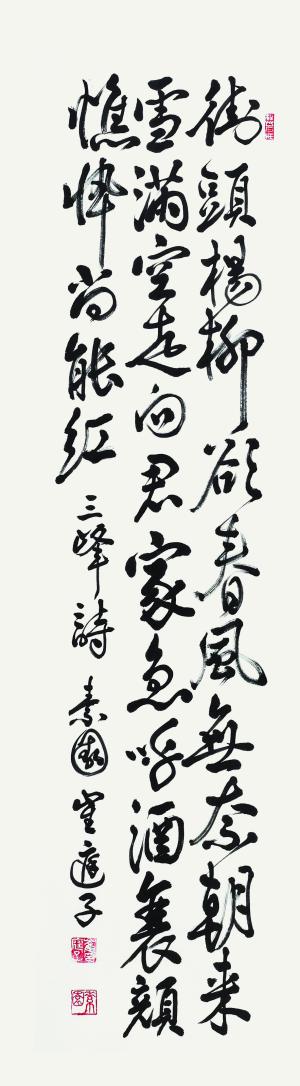 街頭楊柳欲春風無奈朝来
雪滿空走向君家急呼酒衰顔
憔悴尚能紅 三峰詩 素園